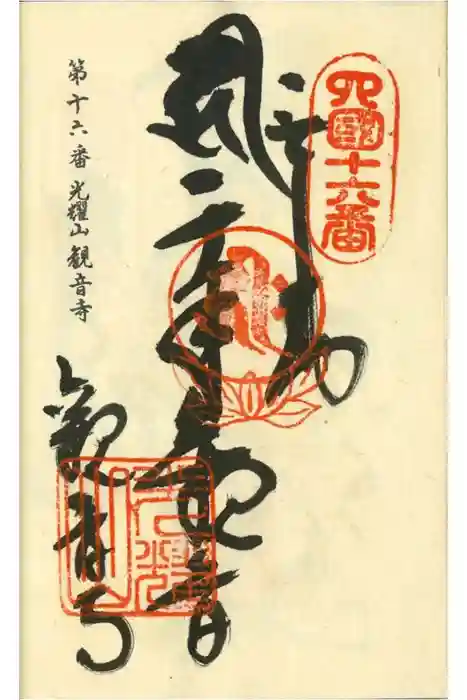 四國十六番
奉納
千手観音
観音寺
第十六番 光耀山 観音寺